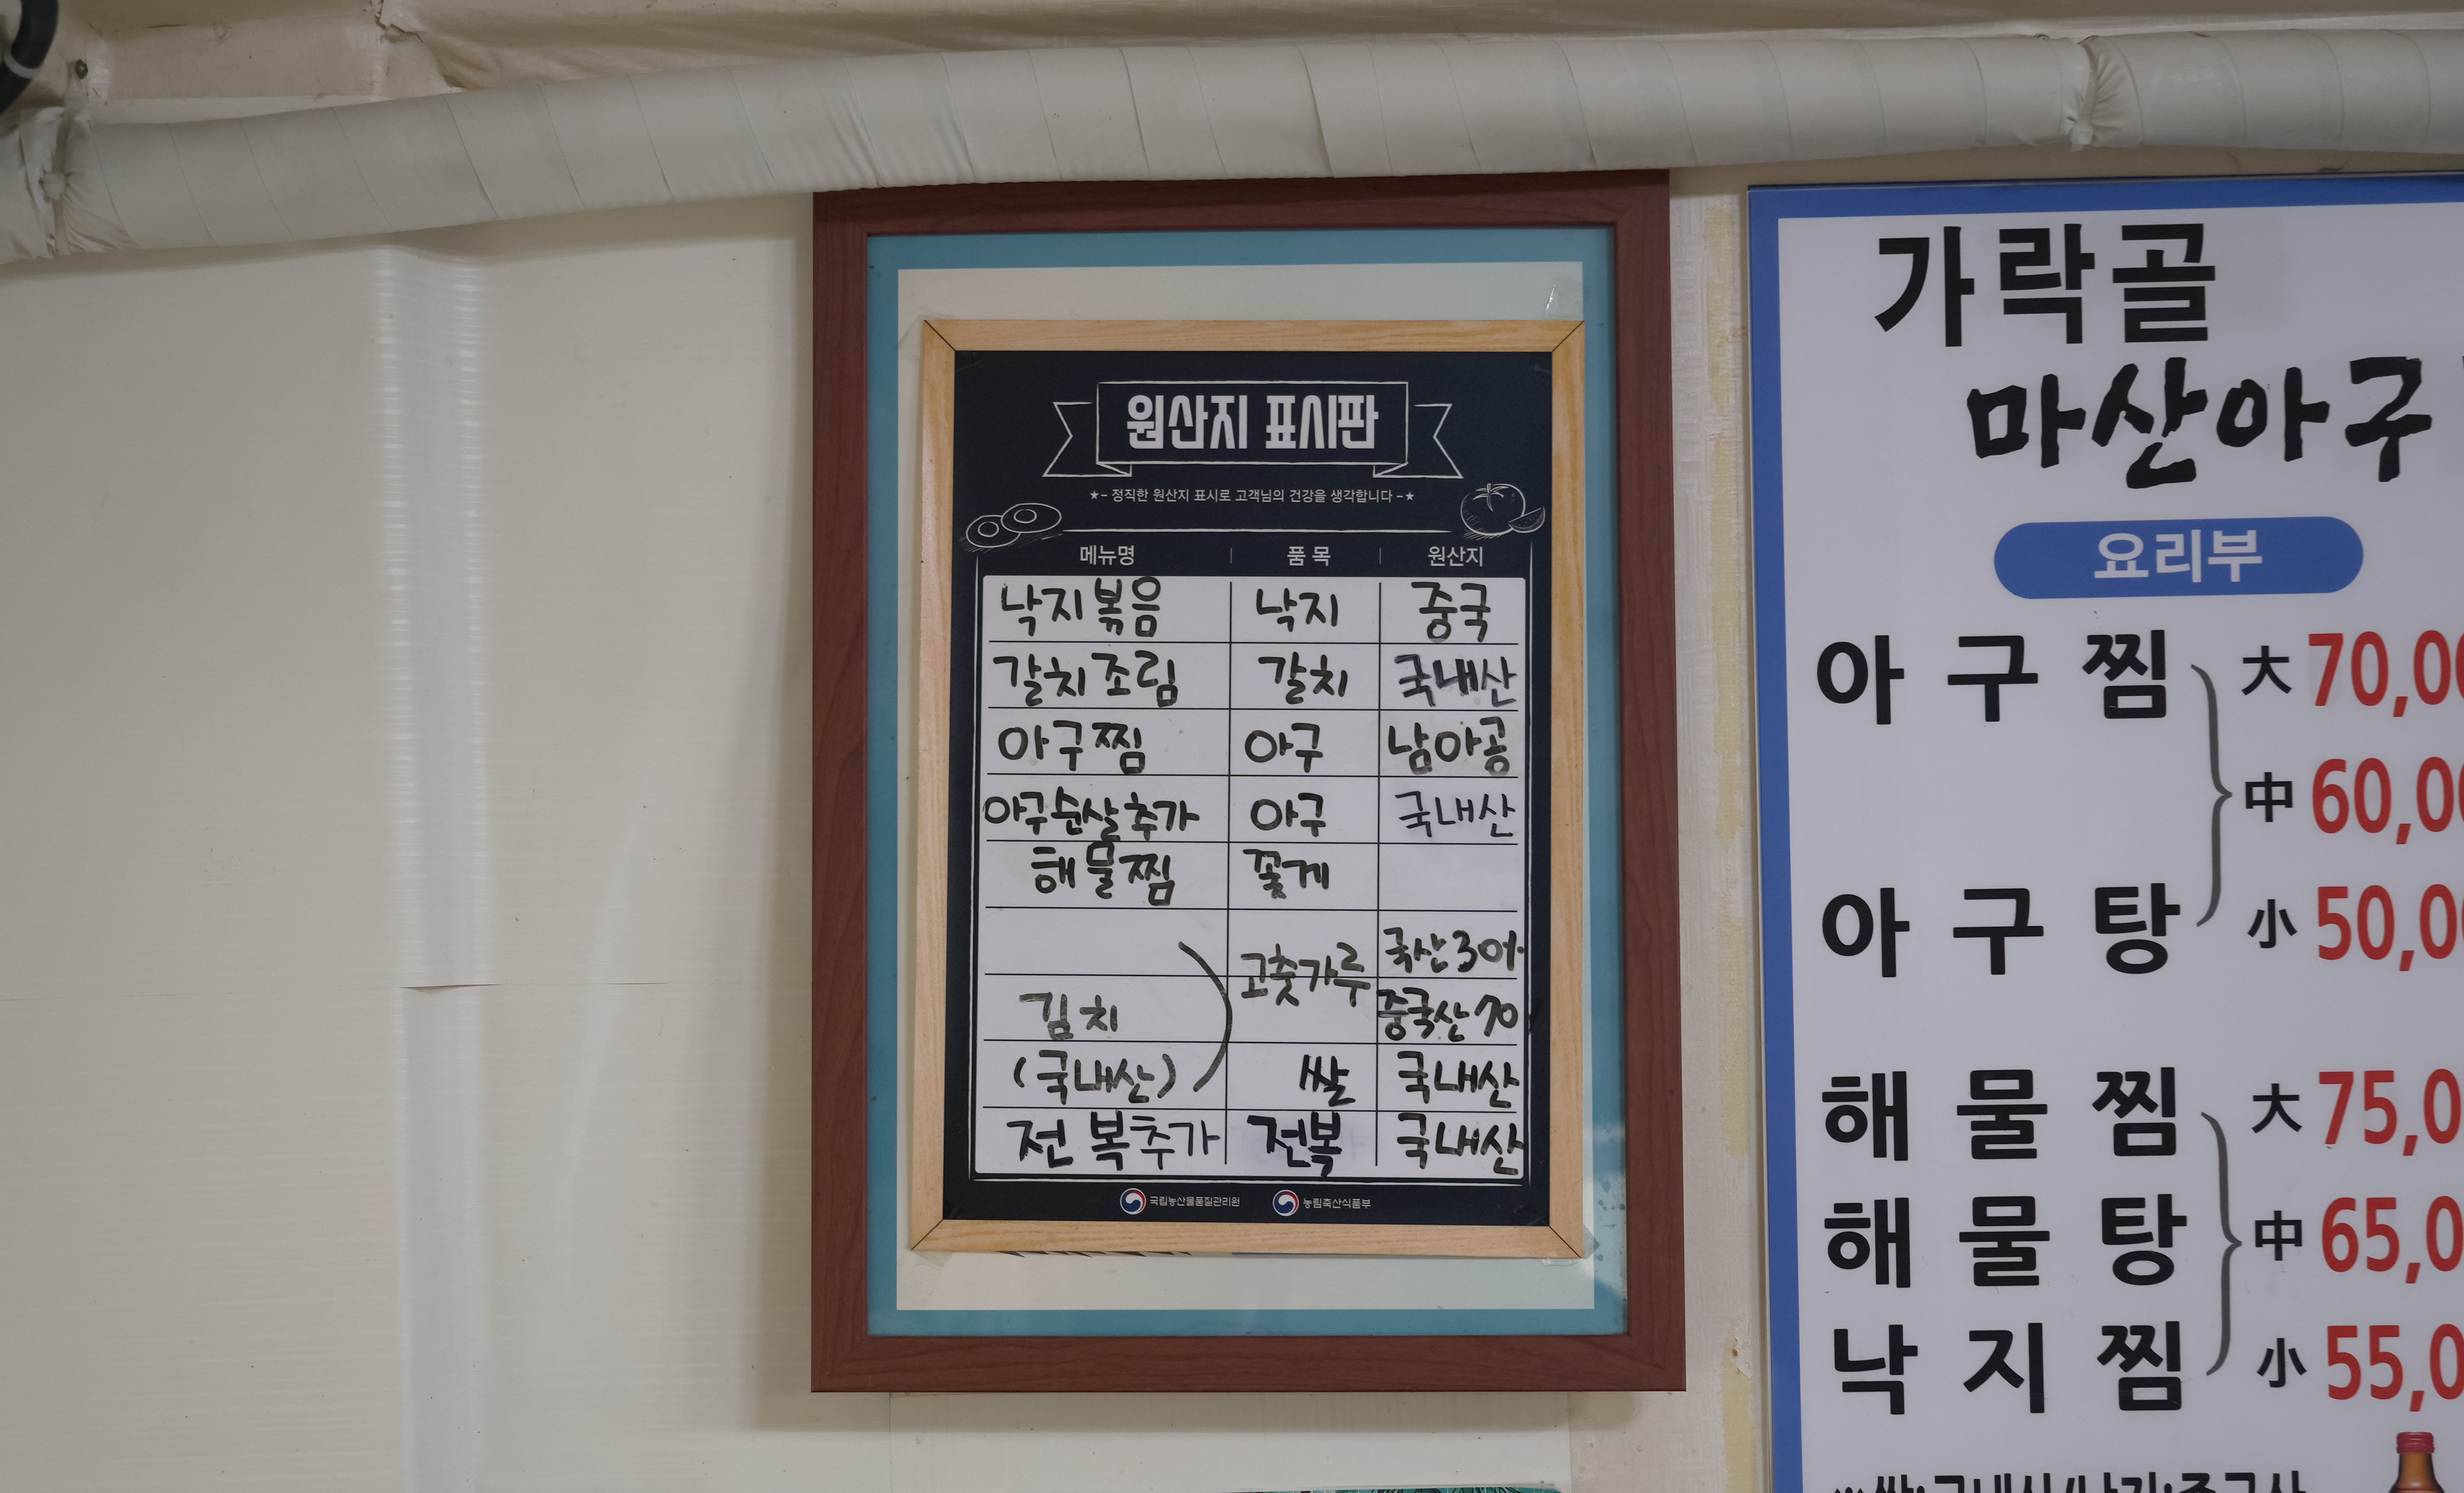 원산지 표시판
★- 정직한 원산지 표시로 고객님의 건강을 생각합니다 -★
메뉴명 | 품 목 | 원산지
낙지볶음 낙지 중국
갈치조림 갈치 국내산
아구찜 아구 남아공
아구순살추가 아구 국내산
해물찜 꽃게
고춧가루 국산30%
김치 중국산70
(국내산) 쌀 국내산
전복추가 전복 국내산
국립농산물품질관리원 농림축산식품부
가락골
마산아구
요리부
아 구 찜 大 70,00
中 60,00
아 구 탕 小 50,00
해 물 찜 大 75,0
해 물 탕 中 65,0
낙 지 찜 小 55,0